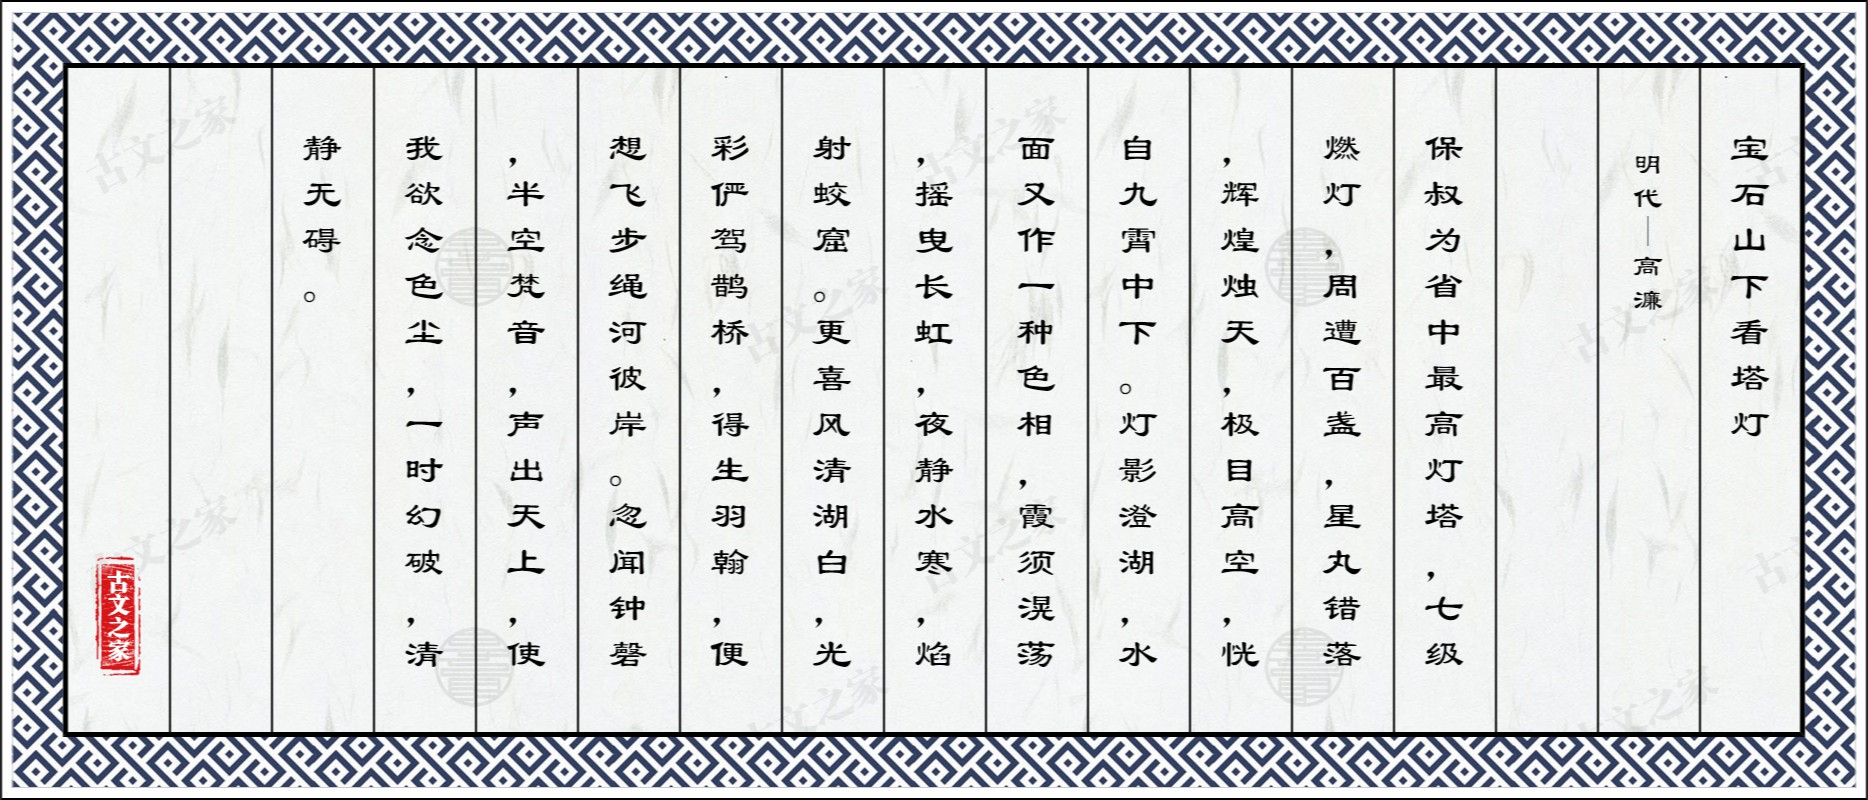 宝石山下看塔灯
明代—高濂
保叔为省中最高灯塔，七级
燃灯，周遭百盏，星丸错落
，辉煌烛天，极目高空，恍
自九霄中下。灯影澄湖，水
面又作一种色相，霞须滉荡
，摇曳长虹，夜静水寒，焰
射蛟窟。更喜风清湖白，光
彩俨驾鹊桥，得生羽翰，便
想飞步绳河彼岸。忽闻钟磬
，半空梵音，声出天上，使
我欲念色尘，一时幻破，清
静无碍。
古文之家